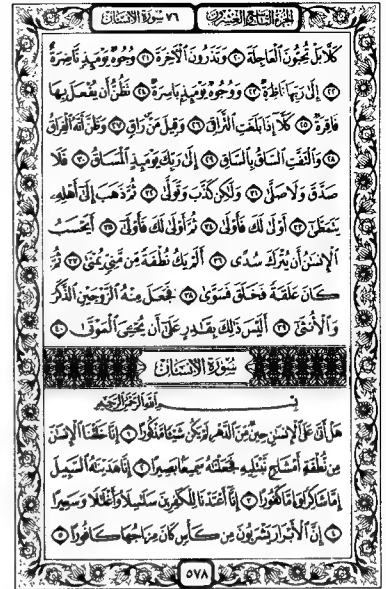 الجزء التاسع والعشرون ٧٦ سورة الإنسان
كَلَّا بَلْ تُحِبُّونَ الْعَاجِلَةَ ٢٠ وَتَذَرُونَ الْآخِرَةَ ٢١ وُجُوهٌ يَوْمَئِذٍ نَاضِرَةٌ
٢٢ إِلَىٰ رَبِّهَا نَاظِرَةٌ ٢٣ وَوُجُوهٌ يَوْمَئِذٍ بَاسِرَةٌ ٢٤ تَظُنُّ أَن يُفْعَلَ بِهَا
فَاقِرَةٌ ٢٥ كَلَّا إِذَا بَلَغَتِ التَّرَاقِيَ ٢٦ وَقِيلَ مَنْ رَاقٍ ٢٧ وَظَنَّ أَنَّهُ الْفِرَاقُ
٢٨ وَالْتَفَّتِ السَّاقُ بِالسَّاقِ ٢٩ إِلَىٰ رَبِّكَ يَوْمَئِذٍ الْمَسَاقُ ٣٠ فَلَا
صَدَّقَ وَلَا صَلَّىٰ ٣١ وَلَٰكِن كَذَّبَ وَتَوَلَّىٰ ٣٢ ثُمَّ ذَهَبَ إِلَىٰ أَهْلِهِ
يَتَمَطَّىٰ ٣٣ أَوْلَىٰ لَكَ فَأَوْلَىٰ ٣٤ ثُمَّ أَوْلَىٰ لَكَ فَأَوْلَىٰ ٣٥ أَيَحْسَبُ
الْإِنسَانُ أَن يُتْرَكَ سُدًى ٣٦ أَلَمْ يَكُ نُطْفَةً مِّن مَّنِيٍّ يُمْنَىٰ ٣٧ ثُمَّ
كَانَ عَلَقَةً فَخَلَقَ فَسَوَّىٰ ٣٨ فَجَعَلَ مِنْهُ الزَّوْجَيْنِ الذَّكَرَ
وَالْأُنثَىٰ ٣٩ أَلَيْسَ ذَٰلِكَ بِقَادِرٍ عَلَىٰ أَن يُحْيِيَ الْمَوْتَىٰ ٤٠
سورة الإنسان
بسم الله الرحمن الرحيم
هَلْ أَتَىٰ عَلَى الْإِنسَانِ حِينٌ مِّنَ الدَّهْرِ لَمْ يَكُن شَيْئًا مَّذْكُورًا ١ إِنَّا خَلَقْنَا الْإِنسَانَ
مِن نُّطْفَةٍ أَمْشَاجٍ نَّبْتَلِيهِ فَجَعَلْنَاهُ سَمِيعًا بَصِيرًا ٢ إِنَّا هَدَيْنَاهُ السَّبِيلَ
إِمَّا شَاكِرًا وَإِمَّا كَفُورًا ٣ إِنَّا أَعْتَدْنَا لِلْكَافِرِينَ سَلَاسِلَا وَأَغْلَالًا وَسَعِيرًا
٤ إِنَّ الْأَبْرَارَ يَشْرَبُونَ مِن كَأْسٍ كَانَ مِزَاجُهَا كَافُورًا ٥
٥٧٨